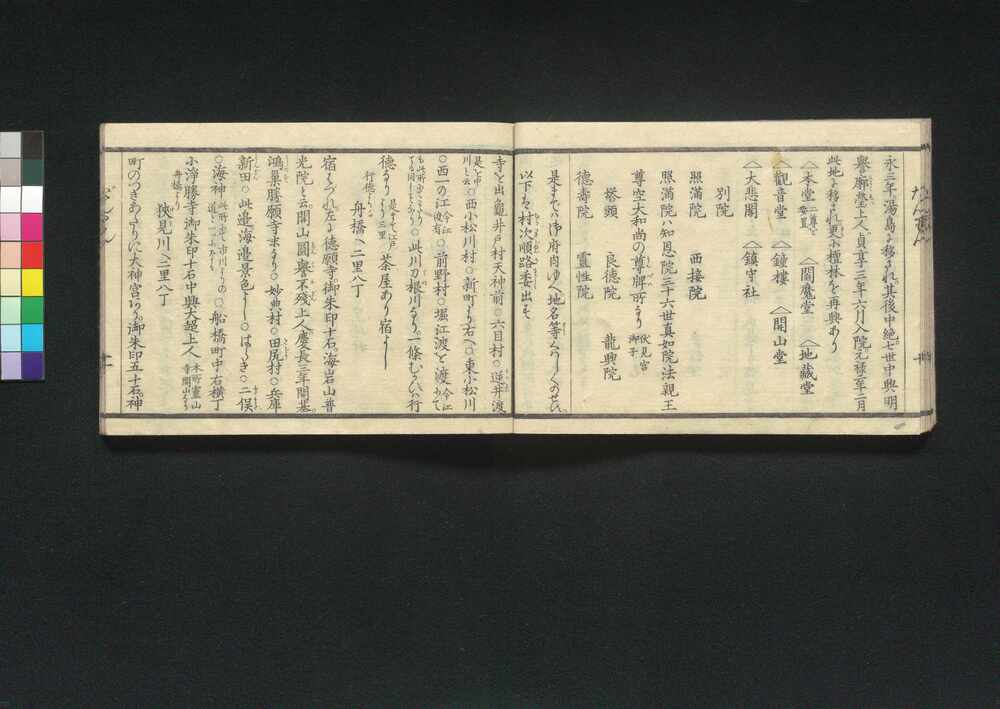 永三年湯島に移され其後中絶七世中興明
譽廓瑩上人貞享三年六月入院元禄二年二月
此地に移され更小檀林を再興あり
本堂 閻魔堂 地蔵堂
觀音堂 鐘樓 開山堂
大悲閣 鎮守社
別院
照滿院 西接院
照滿院ハ知恩院三十六世真如院法親王
尊空大和尚の尊牌所なり 伏見宮御子
塔頭 良徳院 龍興院
徳壽院 靈性院
是まてハ御府内ゆへ地名等くハしくのせす
以下ハ村次順路委出す
寺と出龜井戸村天神前○六目村○逆井渡
川と云○西小松川村○新町より右へ○東小松川
○西一の江○前野村○堀江渡を渡り今江
此川刀根川なり一條むかハ行
徳なり 是まて江戸より三里 茶屋あり宿よし
舟橋へ二里八丁
宿はづれ左に徳願寺御朱印十石海岩山普
光院と云開山圓譽不残上人慶長三年開基
鴻巣勝願寺末なり○妙典村○田尻村○兵庫
新田○此邉海邉景色よし○はらき○二俣
○海神 ○舩橋町中右横丁
小浄勝寺御朱印十石中興大超上人 本所靈山寺開山なり
舟橋より
狹見川へ二里八丁
町のつきあたりに大神宮あり御朱印五十石神